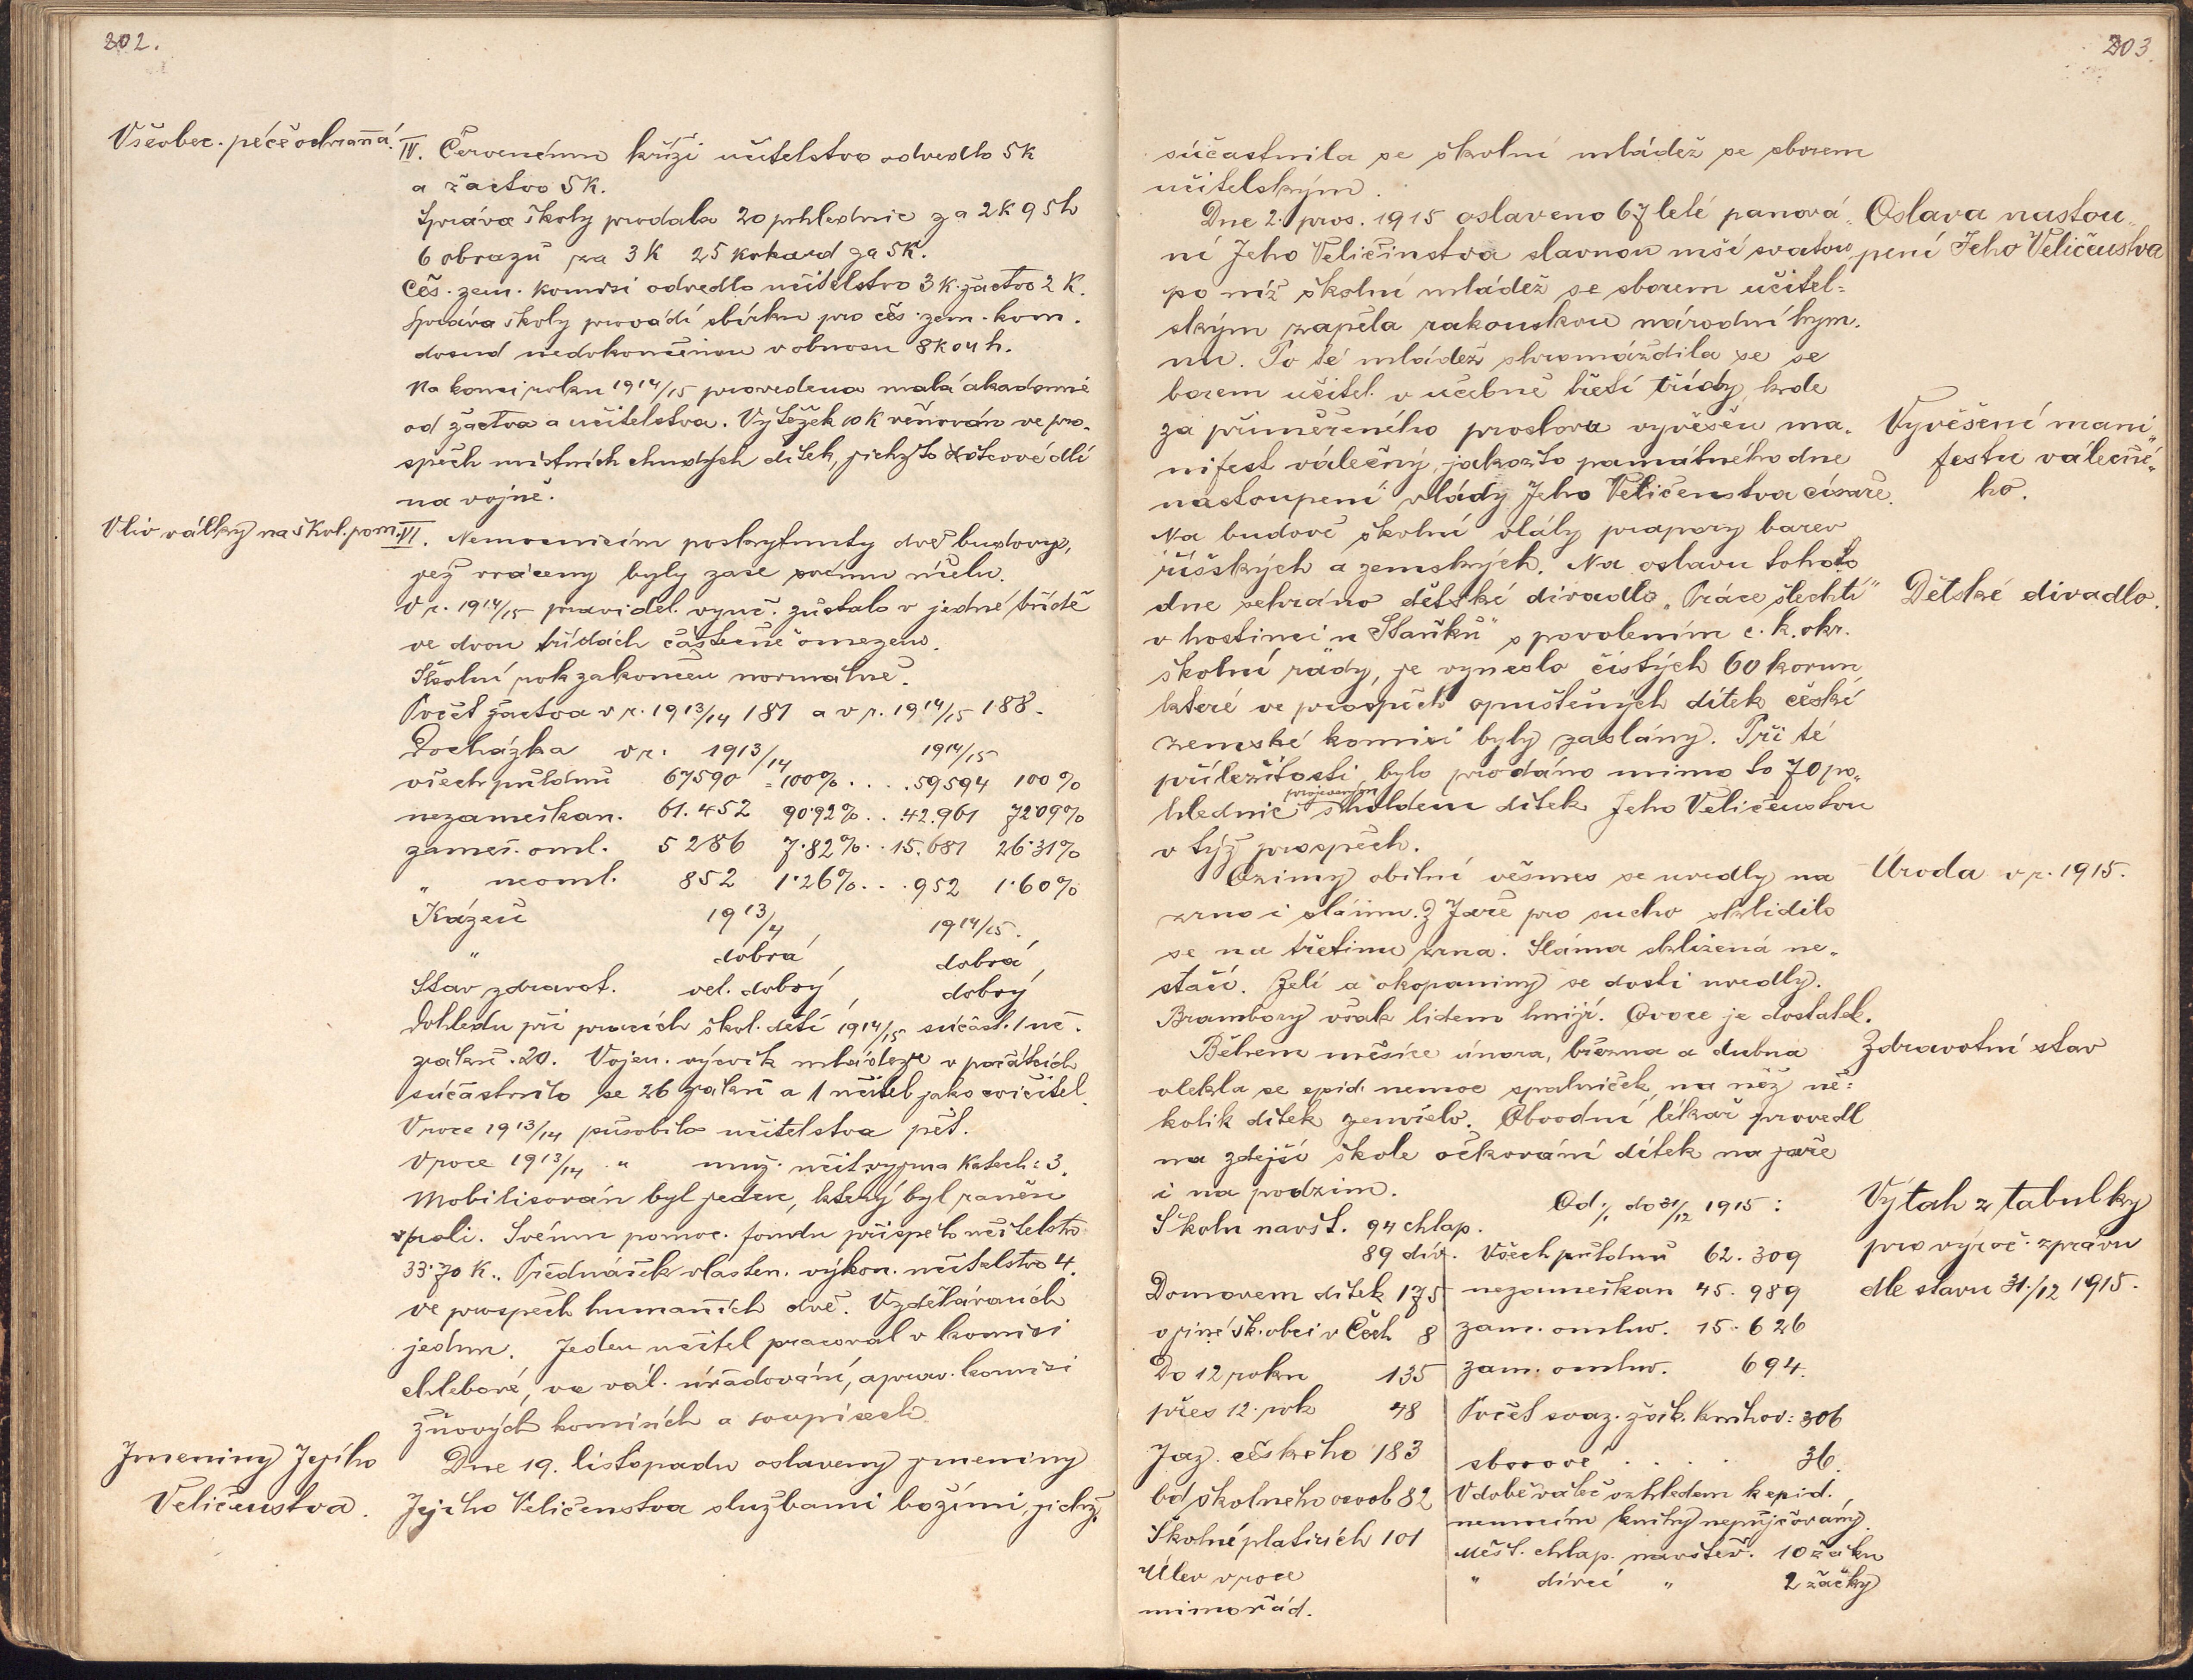 202.
Všeobec. péče ochranná.
IV. Červenému kříži učitelstvo odvedlo 5 K
a žactvo 5 K.
Správa školy prodala 20 pohlednic za 2 K 95 h
6 obrazů za 3 K 25 kokard za 5 K.
Čes. zem. komisi odvedlo učitelstvo 3 K žactvo 2 K.
Správa školy provádí sbírku pro čes. zem. kom.
dosud nedokončenou v obnosu 8 K 04 h.
Na konci roku 1914/15 provedena malá akademie
od žactva a učitelstva. Výtěžek 10 K věnován ve pro-
spěch místních chudých dítek, jichžto otcové dlí
na vojně.
Vliv války na škol. pom.
VI. Nemocnicím poskytnuty dvě budovy,
jež vráceny byly zase svému účelu.
V r. 1914/15 pravidel. vyuč. zůstalo v jedné třídě
ve dvou třídách částečně omezeno.
Školní rok zakončen normálně.
Počet žactva v r. 1913/14 181 a v r. 1914/15 188.
Docházka v r. 1913/14 1914/15
všech půldnů 67590 = 100% . . . 59594 100%
nezameškan. 61.452 90·92% . . 42.961 72·09%
zameš. oml. 5286 7·82% . . 15.681 26·31%
„ neoml. 852 1·26% . . . 952 1·60%
Kázeň 1913/4 1914/15.
„ dobrá, dobrá,
Stav zdravot. vel. dobrý, dobrý
Dohledu při pracích škol. dětí 1914/15 súčast. 1 uč.
žáků 20. Vojen. výcvik mládeže v počátcích
súčastnilo se 26 žáků a 1 učitel jako cvičitel.
V roce 1913/14 působilo učitelstva pět.
V roce 1913/14 „ muž. učit. vyjma katech: 3.
Mobilisován byl jeden, který byl raněn
v poli. Svému pomoc. fondu přispělo učitelstvo
33·70 K. Přednášek vlasten. výkon. učitelstvo 4.
ve prospěch humanních dvě. Vzdělávacích
jednu. Jeden učitel pracoval v komisi
chlebové, ve vál. úřadování, aprov. komisi
žňových komisích a soupisech.
Jmeniny Jejího
Veličenstva.
Dne 19. listopadu oslaveny jmeniny
Jejího Veličenstva službami božími, jichž
203.
súčastnila se školní mládež se sborem
učitelským.
Dne 2. pros. 1915 oslaveno 67 leté panová-
Oslava nastou-
ní Jeho Veličinstva slavnou mší svatou
pení Jeho Veličenstva
po níž školní mládež se sborem učitel-
ským zapěla rakouskou národní hym-
nu. Po té mládež shromáždila se se
borem učitel. v učebně třetí třídy, kde
za přiměřeného proslovu vyvěšen ma-
Vyvěšení mani-
nifest válečný, jakožto památného dne
festu válečné-
nastoupení vlády Jeho Veličenstva císaře.
ho.
Na budově školní vlály prapory barev
říšských a zemských. Na oslavu tohoto
dne sehráno dětské divadlo „Práce šlechtí"
Dětské divadlo.
v hostinci u Staňků" s povolením c. k. okr.
školní rady, je vyneslo čistých 60 korun,
které ve prospěch opuštěných dítek české
zemské komisi byly zaslány. Při té
příležitosti bylo prodáno mimo to 70 po-
hlednic projeveným s holdem dítek Jeho Veličenstvu
v týž prospěch.
Ozimy obilní věsměs se uvedly na
Úroda v r. 1915.
zrno i slámu. Z Jaře pro sucho sklidilo
se na třetinu zrna. Sláma sklizená ne-
stačí. Zelí a okopaniny se dosti uvedly.
Brambory však lidem hnijí. Ovoce je dostatek.
Během měsíce února, března a dubna
Zdravotní stav
vlekla se epid. nemoc spalniček, na něž ně-
kolik dítek zemřelo. Obvodní lékař provedl
na zdejší škole očkování dítek na jaře
i na podzim.
Od 1/1 do 31/12 1915:
Výtah z tabulky
pro výroč. zprávu
dle stavu 31./12 1915.
Školu navšt. 94 chlap.
89 dív. Všech půldnů 62.309
Domovem dítek 175 nezameškan 45.989
v jiné šk. obci v Čech 8 zam. omluv. 15.626
Do 12 roku 135 zam. omluv. 694.
přes 12. rok 48 Počet svaz. žák. knihov: 306
Jaz. českého 183 sborové . . . . 36.
Od školného osvob 82 V době váleč vzhledem k epid.
nemocím knihy nepůjčovány.
Školné platících 101
Měšt. chlap. navštěv. 10 žáku
Úlev v roce
„ dívčí „ 2 žačky
mimořád.